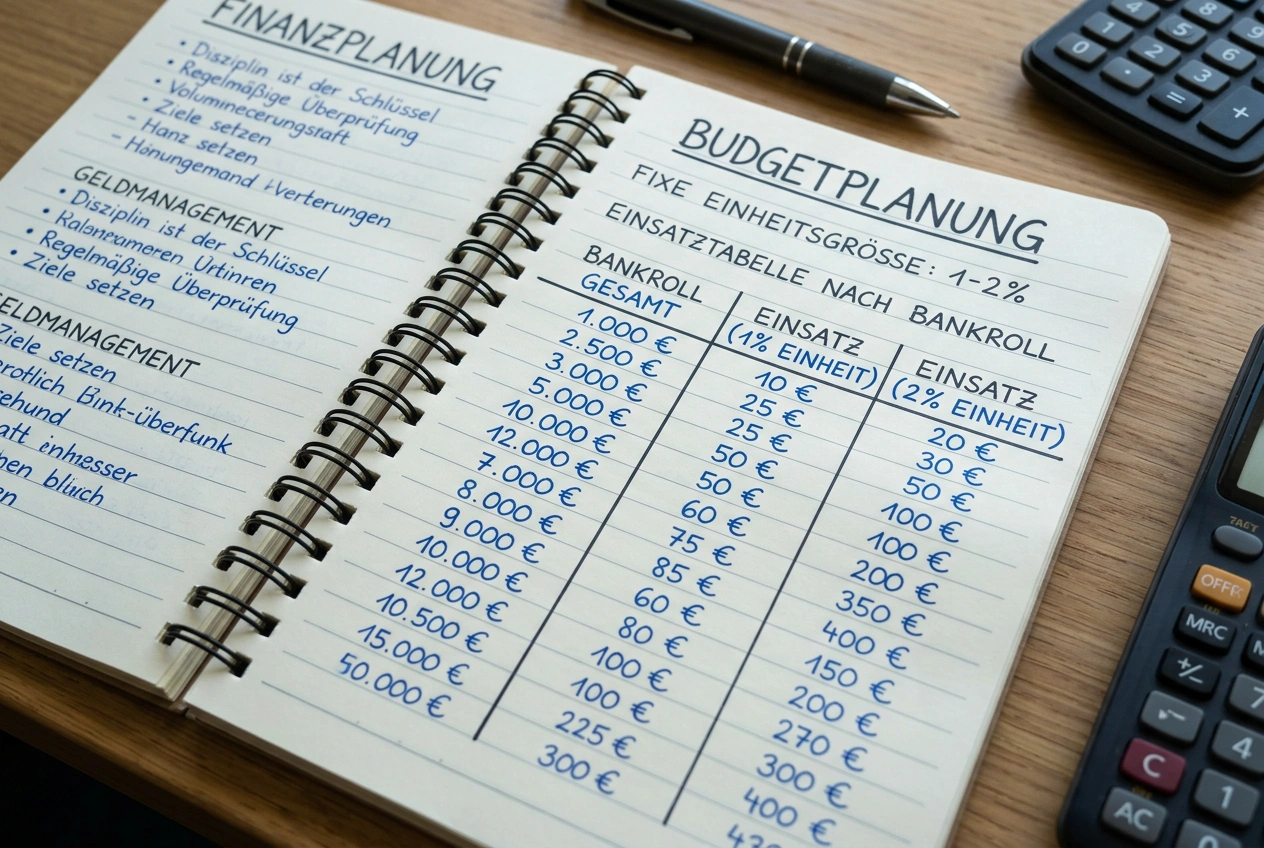 FINANZPLANUNG
• Disziplin ist der Schlüssel
• Regelmäßige Überprüfung
• Voluminecerungstaft
• Ziele setzen
- Hanz setzen
- Honungemand
GELDMANAGEMENT
• Disziplin ist der Schlüssel
• Urtinren
• Regelmäßige Überprüfung
• Ziele setzen
ELDMANAGEMENT
Ziele setzen
Bink-überfunk
ehund
att
en
BUDGETPLANUNG
FIXE EINHEITSGRÖSSE: 1-2%
EINSATZTABELLE NACH BANKROLL
BANKROLL GESAMT EINSATZ (1% EINHEIT) EINSATZ (2% EINHEIT)
1.000 € 10 € 20 €
2.500 € 25 € 30 €
3.000 € 25 € 50 €
5.000 € 50 € 100 €
10.000 € 50 € 100 €
12.000 € 60 € 200 €
7.000 € 75 € 350 €
8.000 € 85 € 400 €
9.000 € 60 € 150 €
10.000 € 80 € 200 €
12.000 € 100 € 270 €
10.500 € 100 € 300 €
15.000 € 225 € 400 €
50.000 € 300 €
4 8
1 5 9
0 2 6
. 3
= +
OFF
MRC
+/-
7
C 4
AC 1
0